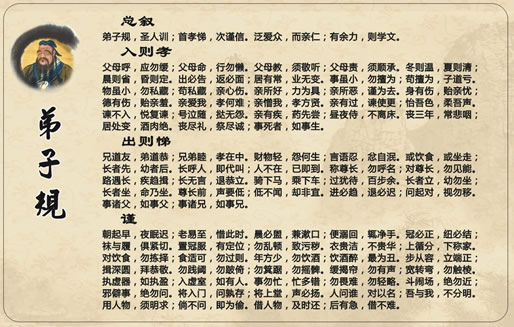 弟子規
总叙
弟子规，圣人训；首孝悌，次谨信。泛爱众，而亲仁；有余力，则学文。
入则孝
父母呼，应勿缓；父母命，行勿懒。父母教，须敬听；父母责，须顺承。冬则温，夏则清；
晨则省，昏则定。出必告，返必面；居有常，业无变。事虽小，勿擅为；苟擅为，子道亏。
物虽小，勿私藏；苟私藏，亲心伤。亲所好，力为具；亲所恶，谨为去。身有伤，贻亲忧；
德有伤，贻亲羞。亲爱我，孝何难；亲憎我，孝方贤。亲有过，谏使更；怡吾色，柔吾声。
谏不入，悦复谏；号泣随，挞无怨。亲有疾，药先尝；昼夜侍，不离床。丧三年，常悲咽；
居处变，酒肉绝。丧尽礼，祭尽诚；事死者，如事生。
出则悌
兄道友，弟道恭；兄弟睦，孝在中。财物轻，怨何生；言语忍，忿自泯。或饮食，或坐走；
长者先，幼者后。长呼人，即代叫；人不在，己即到。称尊长，勿呼名；对尊长，勿见能。
路遇长，疾趋揖；长无言，退恭立。骑下马，乘下车；过犹待，百步余。长者立，幼勿坐；
长者坐，命乃坐。尊长前，声要低；低不闻，却非宜。进必趋，退必迟；问起对，视勿移。
事诸父，如事父；事诸兄，如事兄。
谨
朝起早，夜眠迟；老易至，惜此时。晨必盥，兼漱口；便溺回，辄净手。冠必正，纽必结；
袜与履，俱紧切。置冠服，有定位；勿乱顿，致污秽。衣贵洁，不贵华；上循分，下称家。
对饮食，勿拣择；食适可，勿过则。年方少，勿饮酒；饮酒醉，最为丑。步从容，立端正；
揖深圆，拜恭敬。勿践阈，勿跛倚；勿箕踞，勿摇髀。缓揭帘，勿有声；宽转弯，勿触棱。
执虚器，如执盈；入虚室，如有人。事勿忙，忙多错；勿畏难，勿轻略。斗闹场，绝勿近；
邪僻事，绝勿问。将入门，问孰存；将上堂，声必扬。人问谁，对以名；吾与我，不分明。
用人物，须明求；倘不问，即为偷。借人物，及时还；后有急，借不难。